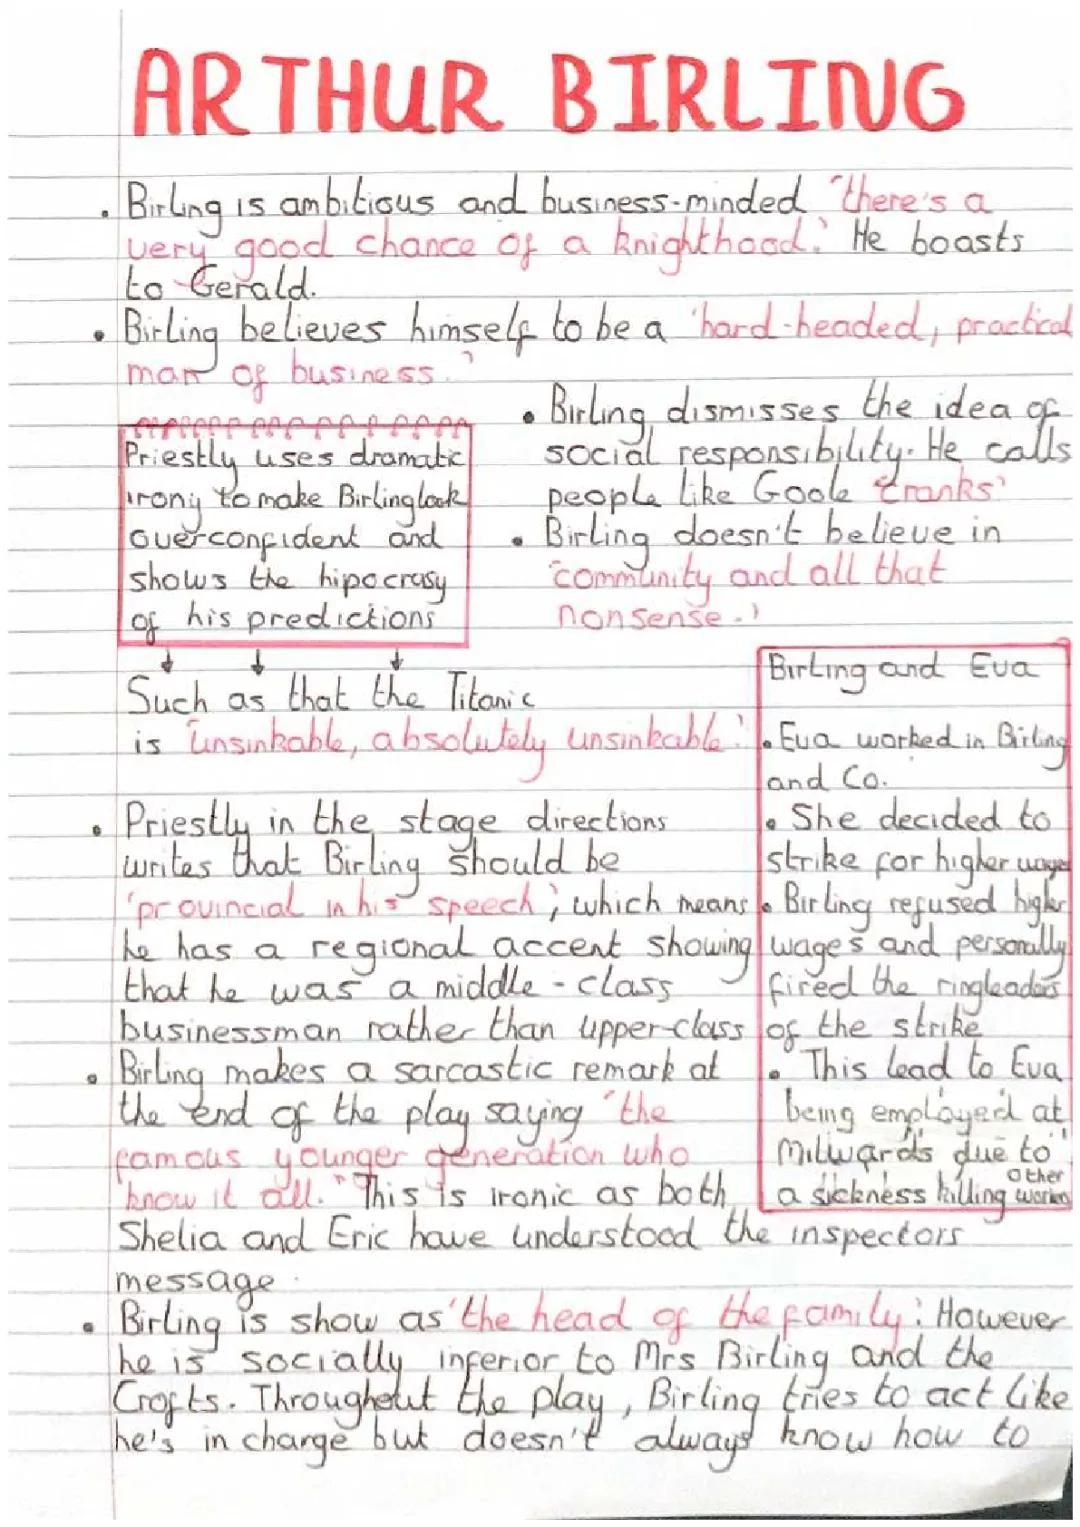 ARTHUR BIRLING
• Birling is ambitious and business-minded "there's a
very good chance of a knighthood." He boasts
to Gerald.
• Birling believes himself to be a 'hard-headed, practical
man of business.'
Priestly uses dramatic
irony to make Birling look
overconfident and
shows the hipocrasy
of his predictions
Such as that the Titanic
is "unsinkable, absolutely unsinkable".
• Birling dismisses the idea of
social responsibility. He calls
people like Goole 'cranks'
• Birling doesn't believe in
"community and all that
nonsense.'
Birling and Eva
• Eva worked in Birling
and Co.
• She decided to
strike for higher wages
• Birling refused higher
wages and personally
fired the ringleaders
of the strike
• This lead to Eva
being employed at
Milwards due to
a sickness killing other workers
• Priestly in the stage directions
writes that Birling should be
'provincial in his speech', which means
he has a regional accent showing
that he was a middle-class
businessman rather than upper-class
• Birling makes a sarcastic remark at
the end of the play saying "the
famous younger generation who
know it all." This is ironic as both
Shelia and Eric have understood the inspectors
message.
• Birling is show as 'the head of the family'. However
he is socially inferior to Mrs Birling and the
Crofts. Throughout the play, Birling tries to act like
he's in charge but doesn't always know how to